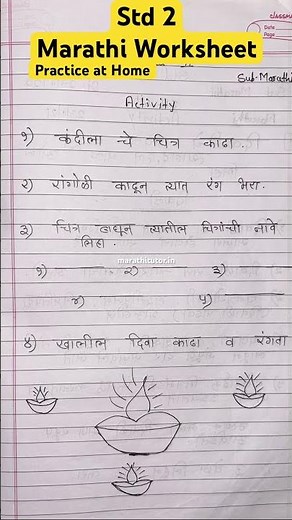 Std 2
Marathi Worksheet
Practice at Home
classmate
Date
Page
Sub-Marathi
Activity
१) कंदीला चे चित्र काढा.
२) रांगोळी काढून त्यात रंग भरा.
३) चित्र बघून त्यातील चित्रांची नावे
लिहा.
marathitutor.in
१) २) ३)
४) ५)
४) खालील दिवा काढा व रंगवा